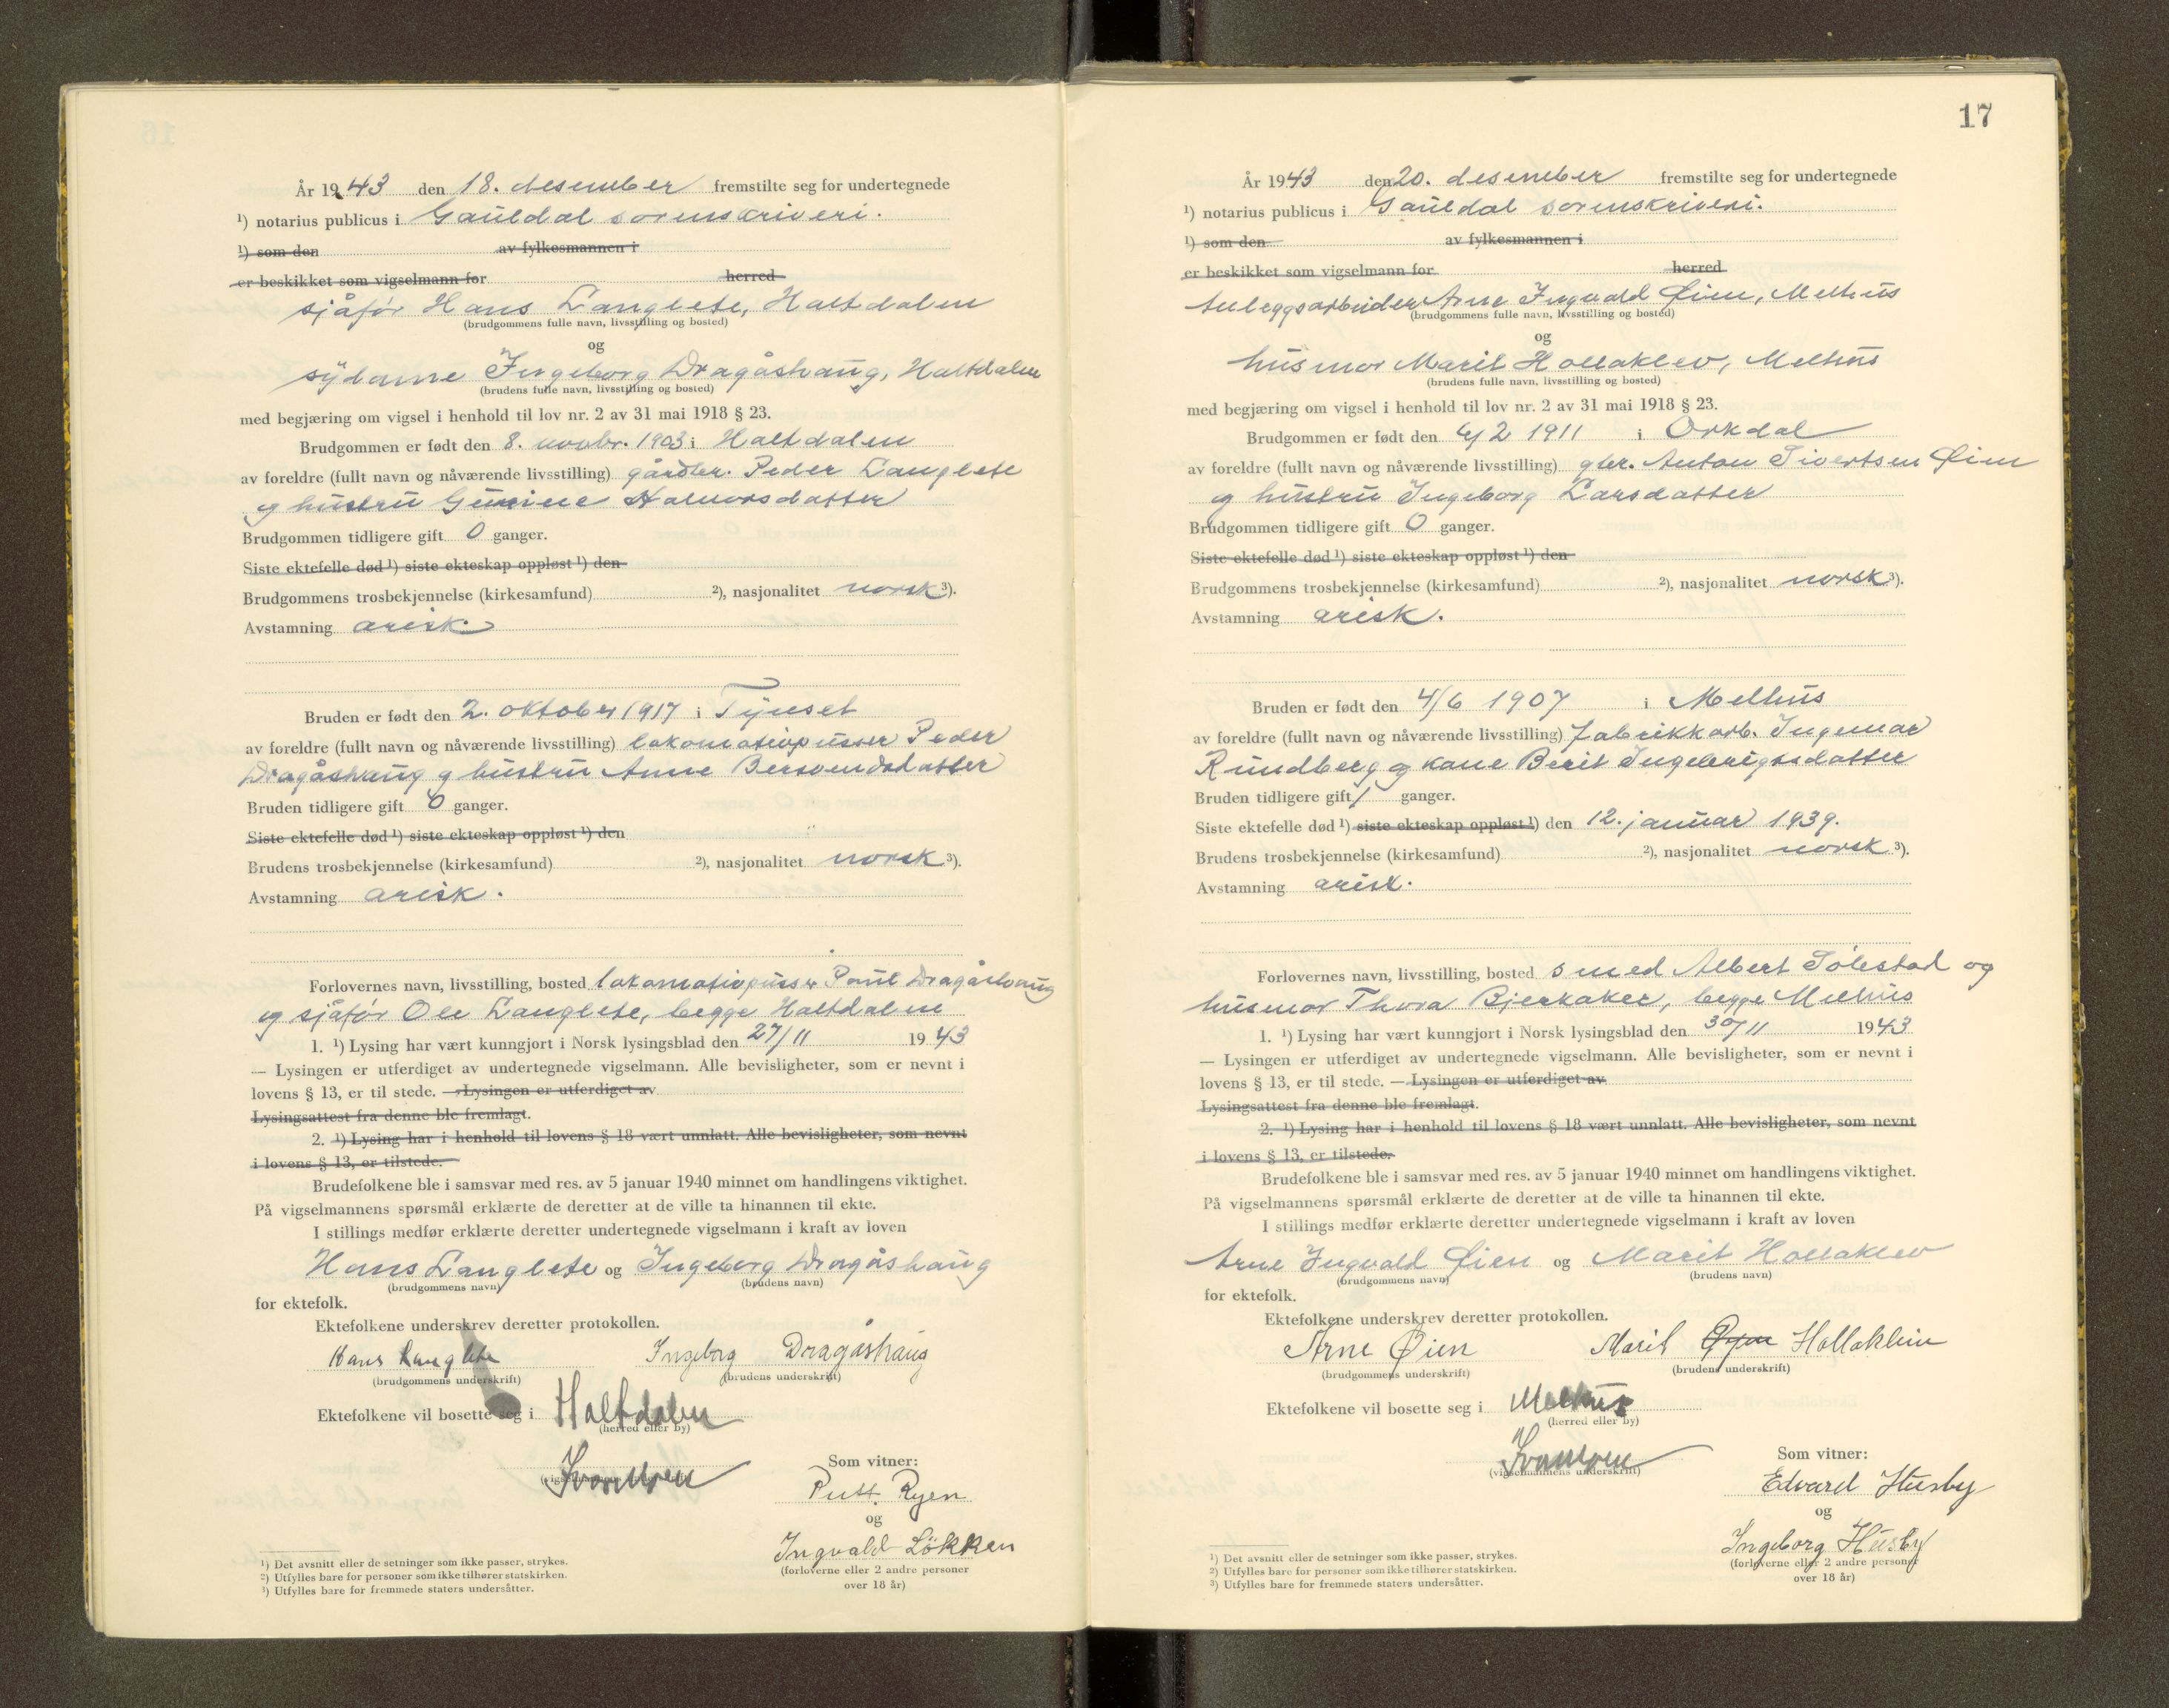 År 1943 den 18. desember fremstilte seg for undertegnede
¹) notarius publicus i Gauldal sorenskriveri.
¹) som den av fylkesmannen i
er beskikket som vigselmann for herred
sjåfør Hans Langlete, Haltdalen
(brudgommens fulle navn, livsstilling og bosted)
og
sydame Ingeborg Dragåshaug, Haltdalen
(brudens fulle navn, livsstilling og bosted)
med begjæring om vigsel i henhold til lov nr. 2 av 31 mai 1918 § 23.
Brudgommen er født den 8. novbr. 1903 i Haltdalen
av foreldre (fullt navn og nåværende livsstilling) gårdbr. Peder Langlete
og hustru Halvorsdatter
Brudgommen tidligere gift 0 ganger.
Siste ektefelle død ¹) siste ekteskap oppløst ¹) den
Brudgommens trosbekjennelse (kirkesamfund) ²), nasjonalitet norsk ³).
Avstamning arisk.
Bruden er født den 2. oktober 1917 i Tynset
av foreldre (fullt navn og nåværende livsstilling) lokomotivpusser Peder
Dragåshaug og hustru Anne Bersvendsdatter
Bruden tidligere gift 0 ganger.
Siste ektefelle død ¹) siste ekteskap oppløst ¹) den
Brudens trosbekjennelse (kirkesamfund) ²), nasjonalitet norsk ³).
Avstamning arisk.
Forlovernes navn, livsstilling, bosted lokomotivpusser Paul Dragåshaug
og sjåfør Ole Langlete, begge Haltdalen
1. ¹) Lysing har vært kunngjort i Norsk lysingsblad den 27/11 1943
— Lysingen er utferdiget av undertegnede vigselmann. Alle bevisligheter, som er nevnt i
lovens § 13, er til stede. — Lysingen er utferdiget av
Lysingsattest fra denne ble fremlagt.
2. ¹) Lysing har i henhold til lovens § 18 vært unnlatt. Alle bevisligheter, som nevnt
i lovens § 13, er tilstede.
Brudefolkene ble i samsvar med res. av 5 januar 1940 minnet om handlingens viktighet.
På vigselmannens spørsmål erklærte de deretter at de ville ta hinannen til ekte.
I stillings medfør erklærte deretter undertegnede vigselmann i kraft av loven
Hans Langlete og Ingeborg Dragåshaug
(brudgommens navn) (brudens navn)
for ektefolk.
Ektefolkene underskrev deretter protokollen.
Hans Langlete Ingeborg Dragåshaug
(brudgommens underskrift) (brudens underskrift)
Ektefolkene vil bosette seg i Haltdalen
(herred eller by)
(vigselmannens underskrift)
Som vitner:
Ryen
og
Ingvald Løkken
(forloverne eller 2 andre personer
over 18 år)
¹) Det avsnitt eller de setninger som ikke passer, strykes.
²) Utfylles bare for personer som ikke tilhører statskirken.
³) Utfylles bare for fremmede staters undersåtter.
17
År 1943 den 20. desember fremstilte seg for undertegnede
¹) notarius publicus i Gauldal sorenskriveri.
¹) som den av fylkesmannen i
er beskikket som vigselmann for herred
Anleggsarbeider Arne Ingvald Øien, Melhus
(brudgommens fulle navn, livsstilling og bosted)
og
husmor Marit Hollaklev, Melhus
(brudens fulle navn, livsstilling og bosted)
med begjæring om vigsel i henhold til lov nr. 2 av 31 mai 1918 § 23.
Brudgommen er født den 2 1911 i Orkdal
av foreldre (fullt navn og nåværende livsstilling) gbr. Anton Sivertsen Øien
og hustru Ingeborg Larsdatter
Brudgommen tidligere gift 0 ganger.
Siste ektefelle død ¹) siste ekteskap oppløst ¹) den
Brudgommens trosbekjennelse (kirkesamfund) ²), nasjonalitet norsk ³).
Avstamning arisk.
Bruden er født den 4/6 1907 i Melhus
av foreldre (fullt navn og nåværende livsstilling) fabrikkarb. Ingemar
Rundberg og kone Berit Ingebrigtsdatter
Bruden tidligere gift 1 ganger.
Siste ektefelle død ¹) siste ekteskap oppløst ¹) den 12. januar 1939.
Brudens trosbekjennelse (kirkesamfund) ²), nasjonalitet norsk ³).
Avstamning arisk.
Forlovernes navn, livsstilling, bosted smed Albert Solestad og
husmor Thora Bjerkaker, begge Melhus
1. ¹) Lysing har vært kunngjort i Norsk lysingsblad den 30/11 1943
— Lysingen er utferdiget av undertegnede vigselmann. Alle bevisligheter, som er nevnt i
lovens § 13, er til stede. — Lysingen er utferdiget av
Lysingsattest fra denne ble fremlagt.
2. ¹) Lysing har i henhold til lovens § 18 vært unnlatt. Alle bevisligheter, som nevnt
i lovens § 13, er tilstede.
Brudefolkene ble i samsvar med res. av 5 januar 1940 minnet om handlingens viktighet.
På vigselmannens spørsmål erklærte de deretter at de ville ta hinannen til ekte.
I stillings medfør erklærte deretter undertegnede vigselmann i kraft av loven
Arne Ingvald Øien og Marit Hollaklev
(brudgommens navn) (brudens navn)
for ektefolk.
Ektefolkene underskrev deretter protokollen.
Arne Øien Marit Hollaklev
(brudgommens underskrift) (brudens underskrift)
Ektefolkene vil bosette seg i Melhus
(herred eller by)
(vigselmannens underskrift)
Som vitner:
Edvard Husby
og
Ingeborg Husby
(forloverne eller 2 andre personer
over 18 år)
¹) Det avsnitt eller de setninger som ikke passer, strykes.
²) Utfylles bare for personer som ikke tilhører statskirken.
³) Utfylles bare for fremmede staters undersåtter.